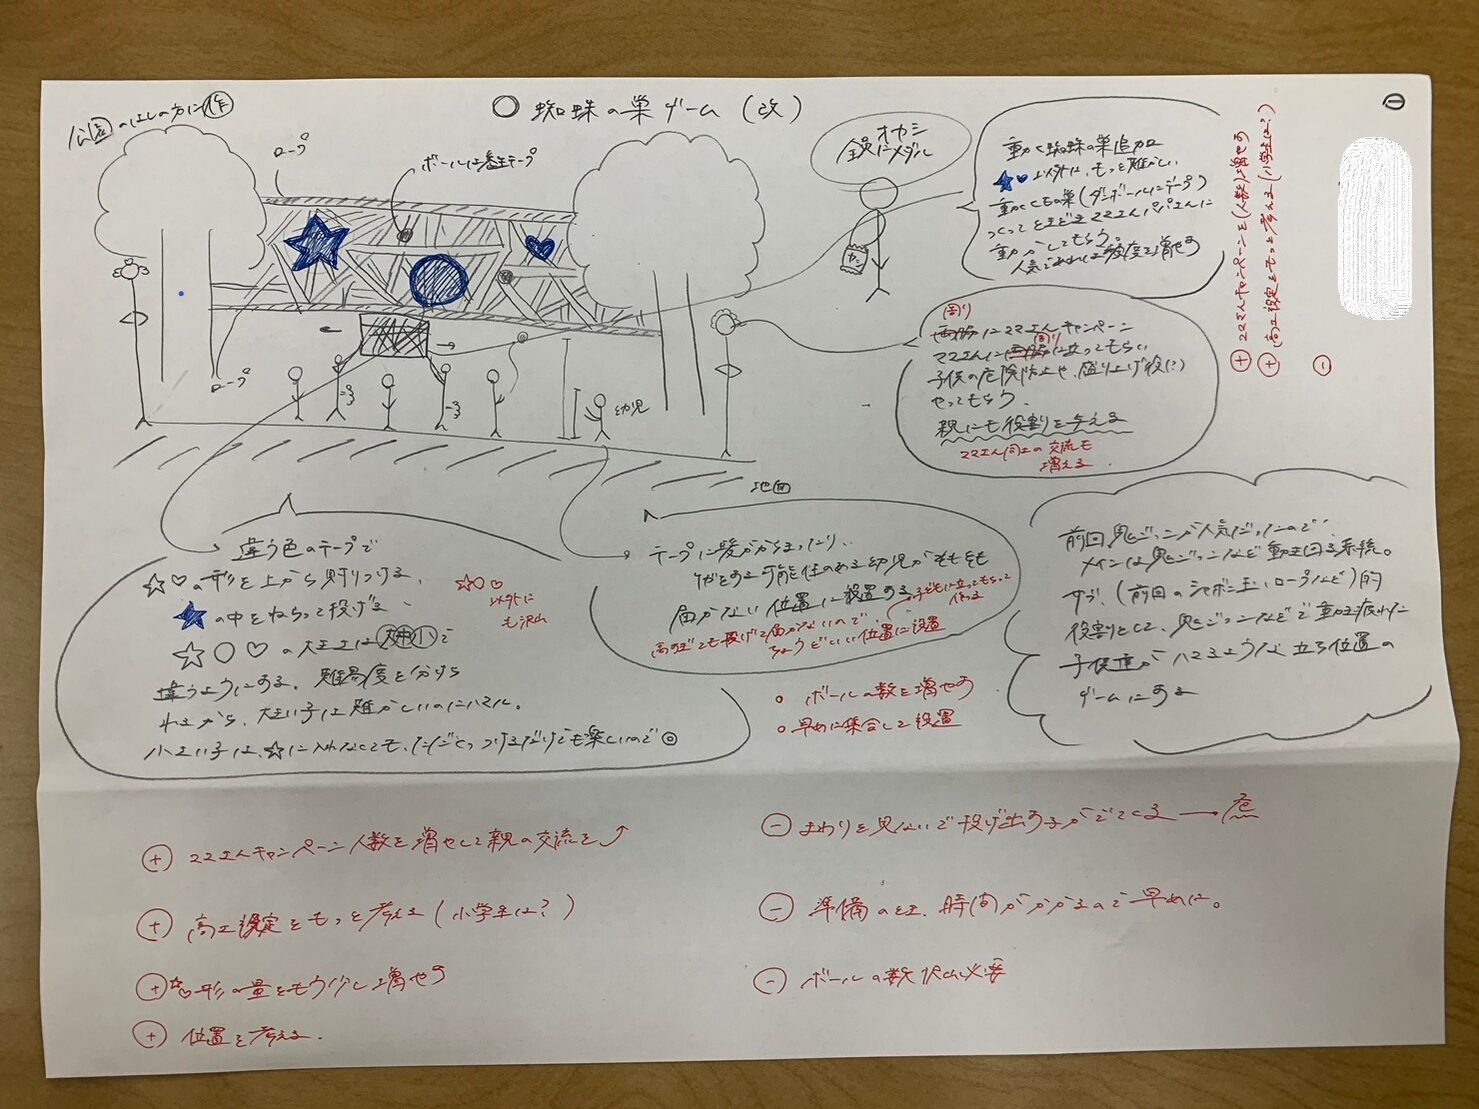 ①
公園のはしの方に作
○ 蜘蛛の巣ゲーム (改)
ロープ
ボールは養生テープ
オカシ
全員にメダル
カシ
動く蜘蛛の巣追加
★♥以外に、もっと難しい
動くくもの巣(ダンボールにテープ)
つくってときどきママさんパパさんに
動かしてもらう。
人気であれば頻度を増やす
⊕ ママさんキャンペーンを(人数)増やす
⊕ 高さ設定をもっと考える(小学生は?)
⊖
周り
両脇にママさんキャンペーン
周り
ママさんに両脇に立ってもらい
子供の危険防止や、盛り上げ役(?)
やってもらう。
親にも役割を与える
ママさん同士の交流も
増える。
ロープ
幼児
地面
違う色のテープで
☆♡の形を上から貼りつける、
★の中をねらって投げる、
☆○♡の大きさは大中小で
違うようにする、難易度を分けら
れるから、大きい子は難かしいのにハマル。
小さい子は、☆に入れなくても、たださくっつけるだけでも楽しいので◎
☆○♡
以外に
も沢山
テープに髪がからまったり、
ケガをする可能性のある幼児がそもそも
届かない位置に設置する
子どもに立ってもらって
作る
高すぎても投げて届かないので、
ちょうどいい位置に設置
○ ボールの数を増やす
○ 早めに集合して設置
前回鬼ごっこが人気だったので、
メインは鬼ごっこなど動き回る系統。
サブ、(前回のシャボン玉、ロープなど)的
役割として、鬼ごっこなどで動き疲れた
子供達がハマるような立ち位置の
ゲームにする
⊕ ママさんキャンペーン人数を増やして親の交流を⤴
⊕ 高さ設定をもっと考える(小学生は?)
⊕ ☆♡形の量をもう少し増やす
⊕ 位置を考える.
⊖ まわりを見ないで投げ出す子がでてくる → 危
⊖ 準備のとき、時間がかかるので早めに。
⊖ ボールの数沢山必要